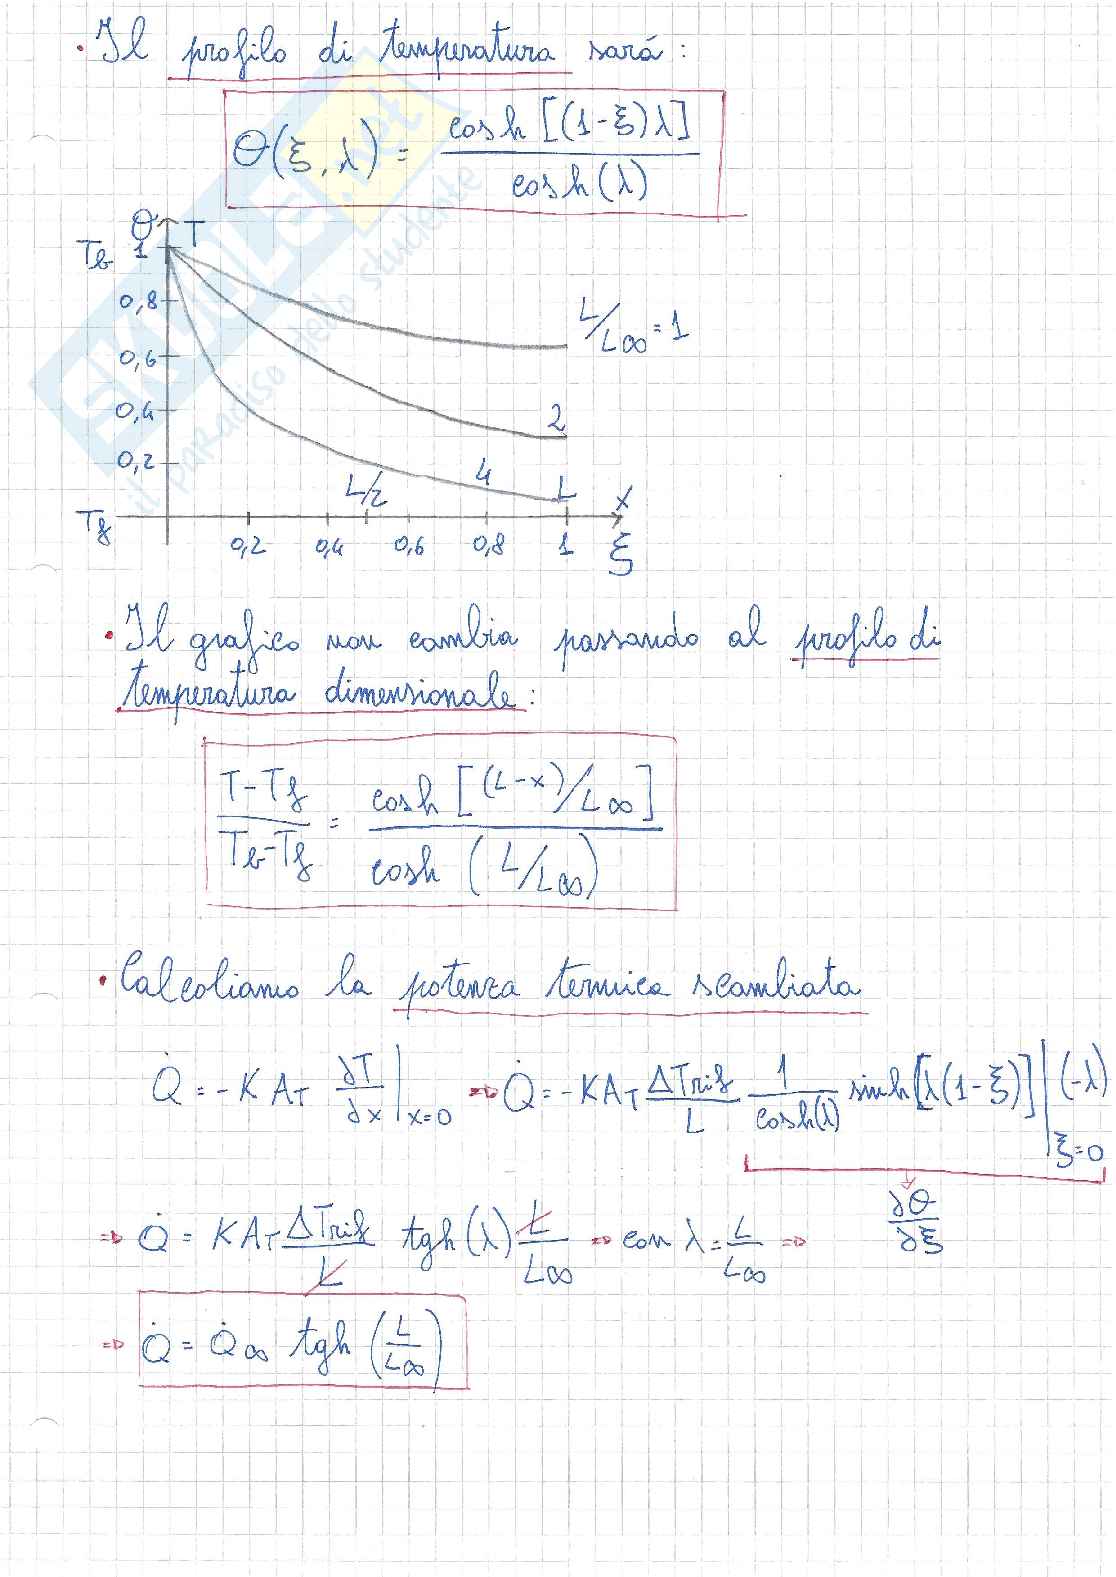 • Il profilo di temperatura sará:
Θ(ξ, λ) = cosh [(1-ξ)λ] / cosh(λ)
Θ T
Tb 1
0,8
L/L∞ = 1
0,6
0,4
2
0,2
L/2 4 L x
Tf
0,2 0,4 0,6 0,8 1 ξ
• Il grafico non cambia passando al profilo di
temperatura dimensionale:
(T-Tf)/(Tb-Tf) = cosh [(L-x)/L∞] / cosh (L/L∞)
• Calcoliamo la potenza termica scambiata
Q̇ = -K A_T ∂T/∂x |x=0 => Q̇ = -K A_T ΔTrif/L 1/cosh(λ) sinh[λ(1-ξ)] (-λ) |ξ=0
∂Θ/∂ξ
=> Q̇ = K A_T ΔTrif/L tgh(λ) L/L∞ => con λ = L/L∞ =>
=> Q̇ = Q̇∞ tgh (L/L∞)
SKUOLA.net
il paradiso dello studente